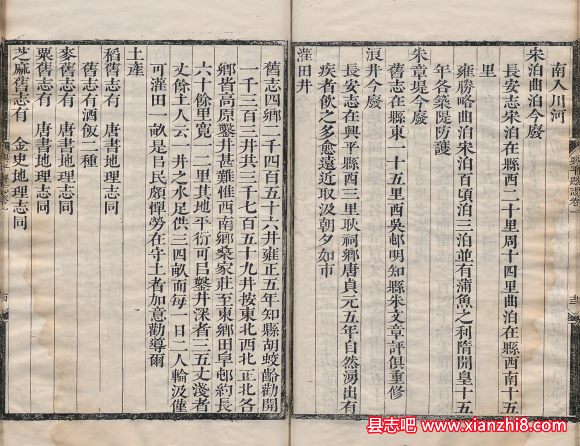 南入川河
宋泊曲泊今廢
長安志宋泊在縣西二十里周十四里曲泊在縣西南十五
里
雍勝略曲泊宋泊百頃泊三泊並有蒲魚之利隋開皇十五
年各築隄防護
朱章堤今廢
舊志在縣東一十五里西吳邨明知縣朱文章評俱重修
浪井今廢
長安志在興平縣西三里耿祠鄉唐貞元五年自然湧出有
疾者飲之多愈遠近取汲朝夕如市
灌田井
舊志四鄉二千四百五十六井雍正五年知縣胡蛟齡勸開
一千三百三井共三千七百五十九井按東北西北正北各
鄉皆高原鑿井甚難惟西南鄉桑家莊至東鄉田阜邨約長
六十餘里寬一二里其地平衍可㠯鑿井深者三五丈淺者
丈餘土人云一井之水足供三四畝而每一日二人輸汲僅
可灌田一畝是㠯民頗憚勞在守土者加意勸導爾
土產
稻舊志有 唐書地理志同
舊志有酒飯二種
麥舊志有 唐書地理志同
粟舊志有 唐書地理志同
芝麻舊志有 金史地理志同
县志吧 www.xianzhi8.com